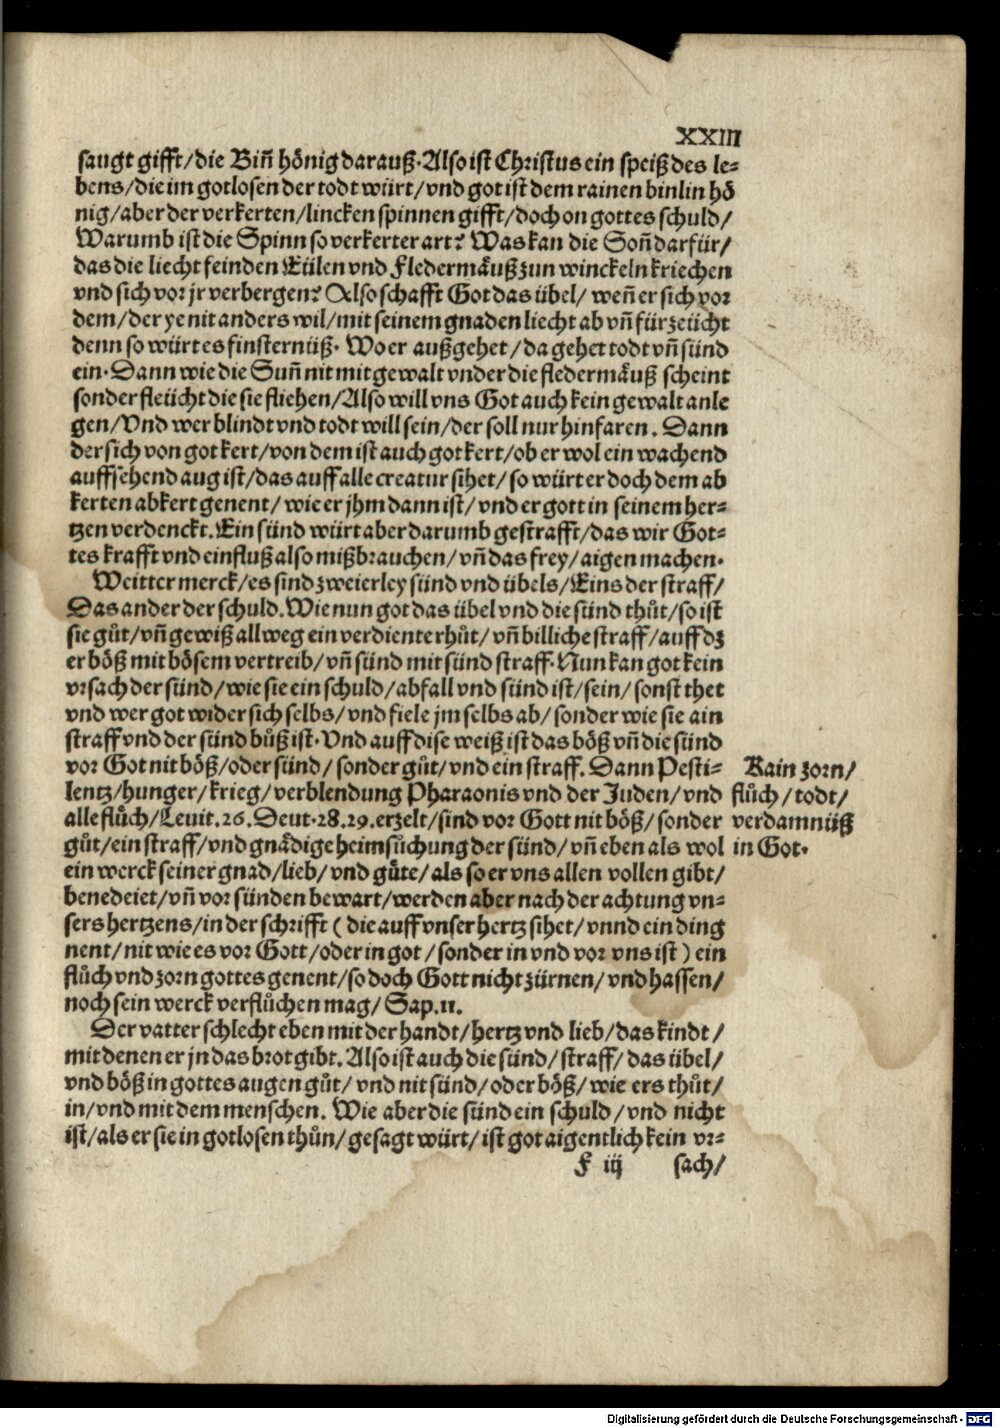 XXIII
saugt gifft/die Biñ hönig darauß. Also ist Christus ein speiß des le-
bens/die im gotlosen der todt würt/vnd got ist dem rainen binlin hö
nig/aber der verkerten/lincken spinnen gifft/doch on gottes schuld/
Warumb ist die Spinn so verkerter art? Was kan die Soñ darfür/
das die liecht feinden Eülen vnd Fledermäuß zun winckeln kriechen
vnd sich vor jr verbergen? Also schafft Got das übel/ weñ er sich vor
dem/der ye nit anders wil/mit seinem gnaden liecht ab vñ fürzeücht
denn so würt es finsternüß. Wo er außgehet/da gehet todt vñ sünd
ein. Dann wie die Suñ nit mit gewalt vnder die fledermäuß scheint
sonder fleücht die sie fliehen/Also will vns Got auch kein gewalt anle
gen/Vnd wer blindt vnd todt will sein/der soll nur hinfaren. Dann
der sich von got kert/von dem ist auch got kert/ob er wol ein wachend
auffsehend aug ist/das auff alle creatur sihet/so würt er doch dem ab
kerten abkert genent/wie er jhm dann ist/vnd er gott in seinem her-
tzen verdenckt. Ein sünd würt aber darumb gestrafft/das wir Got-
tes krafft vnd einfluß also mißbrauchen/vñ das frey/aigen machen.
Weitter merck/es sind zweierley sünd vnd übels/Eins der straff/
Das ander der schuld. Wie nun got das übel vnd die sünd thůt/so ist
sie gůt/vñ gewiß allweg ein verdienter hůt/vñ billiche straff/auff dz
er böß mit bösem vertreib/vñ sünd mit sünd straff. Nun kan got kein
vrsach der sünd/wie sie ein schuld/abfall vnd sünd ist/sein/sonst thet
vnd wer got wider sich selbs/vnd fiele jm selbs ab/sonder wie sie ain
straff vnd der sünd bůß ist. Vnd auff dise weiß ist das böß vñ die sünd
vor Got nit böß/oder sünd/sonder gůt/vnd ein straff. Dann Pesti-
lentz/hunger/krieg/verblendung Pharaonis vnd der Juden/vnd
alle flůch/Leuit.26.Deut.28.29.erzelt/sind vor Gott nit böß/sonder
gůt/ein straff/vnd gnädige heimsůchung der sünd/vñ eben als wol
ein werck seiner gnad/lieb/vnd güte/als so er vns allen vollen gibt/
benedeiet/vñ vor sünden bewart/werden aber nach der achtung vn-
sers hertzens/in der schrifft (die auff vnser hertz sihet/vnnd ein ding
nent/nit wie es vor Gott/oder in got/sonder in vnd vor vns ist) ein
flůch vnd zorn gottes genent/so doch Gott nicht zürnen/vnd hassen/
noch sein werck verflůchen mag/Sap.11.
Der vatter schlecht eben mit der handt/hertz vnd lieb/das kindt/
mit denen er jn das brot gibt. Also ist auch die sünd/straff/das übel/
vnd böß in gottes augen gůt/vnd nit sünd/oder böß/wie ers thůt/
in/vnd mit dem menschen. Wie aber die sünd ein schuld/vnd nicht
ist/als er sie in gotlosen thůn/gesagt würt/ist got aigentlich kein vr-
F iij sach/
Kain zorn/
flůch/todt/
verdamnüß
in Got.
Digitalisierung gefördert durch die Deutsche Forschungsgemeinschaft - DFG